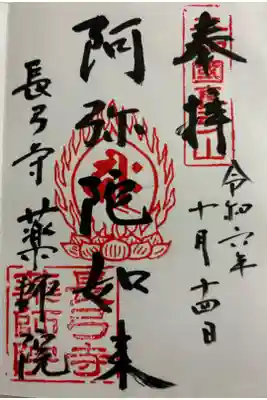 奉拝
令和六年
十月十四日
阿弥陀如来
長弓寺
薬師院
長弓寺
薬師院